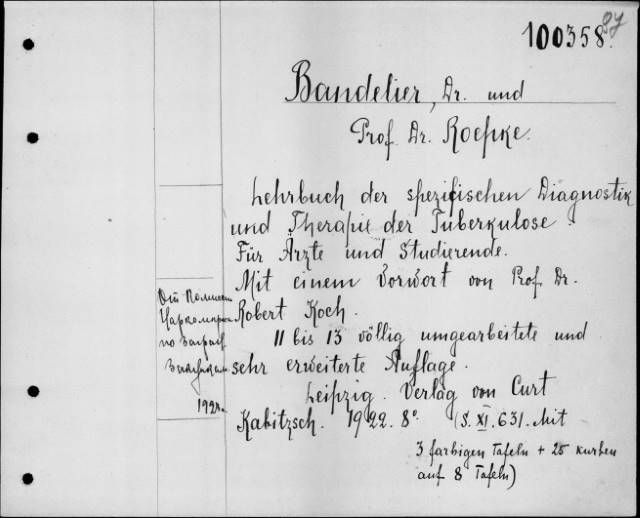 100358.
Bandelier, Dr. und
Prof. Dr. Roepke.
Lehrbuch der spezifischen Diagnostik
und Therapie der Tuberkulose.
Für Ärzte und Studierende.
Mit einem Vorwort von Prof. Dr.
Robert Koch.
11 bis 13 völlig umgearbeitete und
sehr erweiterte Auflage.
Leipzig. Verlag von Curt
Kabitzsch. 1922. 8°. (S. XI. 631. Mit
3 farbigen Tafeln + 25 kurben
auf 8 Tafeln)
От
по
192